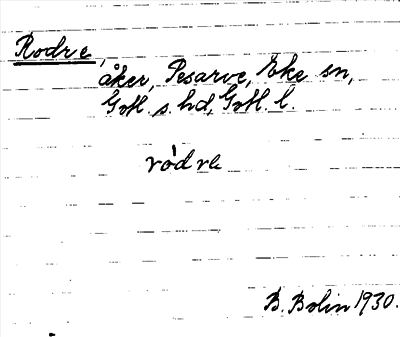 Rodre,
åker, Pesarve, Eke sn,
Gotl. s. hd, Gotl. l.
ródre
B. Bolin 1930.